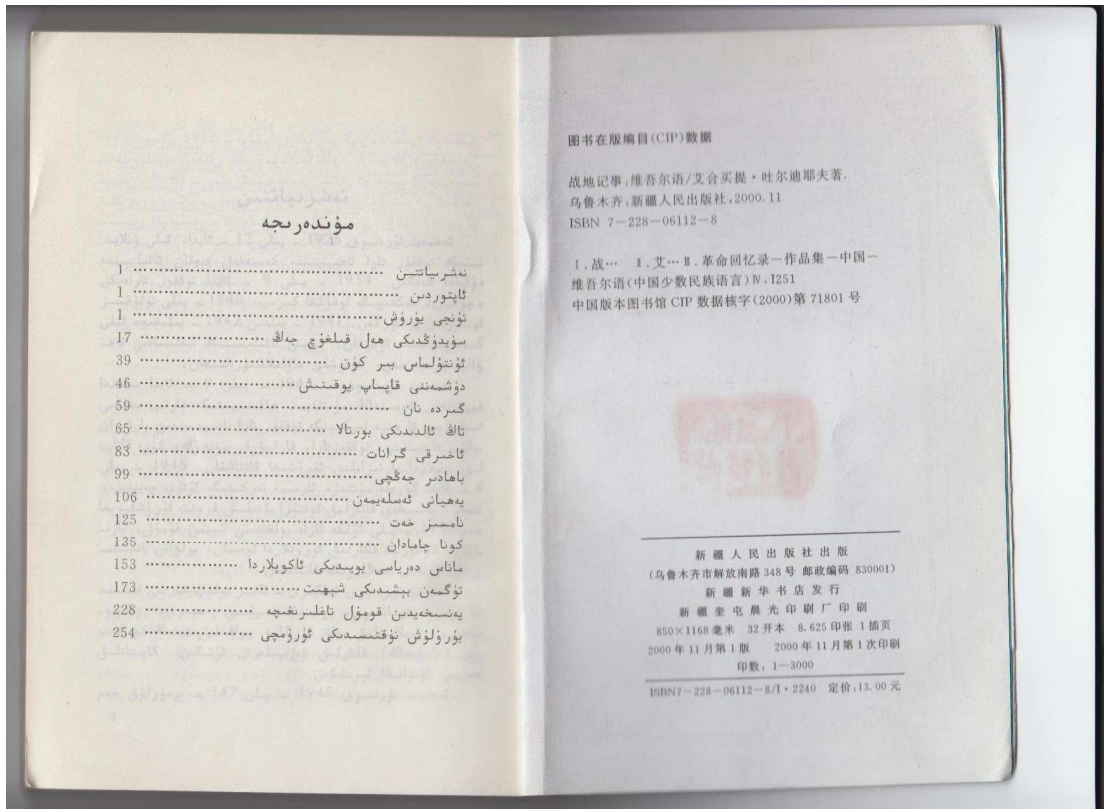 مۇندەرىجە
نەشرىياتتىن ........ 1
ئاپتوردىن ........ 1
تۇنجى يۈرۈش ........ 1
سۈيدۈڭدىكى ھەل قىلغۇچ جەڭ ........ 17
ئۇنتۇلماس بىر كۈن ........ 39
دۈشمەننى قاپساپ يوقىتىش ........ 46
گىردە نان ........ 59
تاڭ ئالدىدىكى بۇرتالا ........ 65
ئاخىرقى گرانات ........ 83
باھادىر جەڭچى ........ 99
يەھيانى ئەسلەيمەن ........ 106
نامسىز خەت ........ 125
كونا چامادان ........ 135
ماناس دەرياسى بويىدىكى ئاكوپلاردا ........ 153
تۈگمەن بېشىدىكى شېھىت ........ 173
يەنسىخەيدىن قومۇل تاغلىرىغىچە ........ 228
بۇرۇلۇش نۇقتىسىدىكى ئۈرۈمچى ........ 254
图书在版编目(CIP)数据
战地记事:维吾尔语/艾合买提·吐尔迪耶夫著.
乌鲁木齐:新疆人民出版社,2000.11
ISBN 7-228-06112-8
Ⅰ.战… Ⅱ.艾… Ⅲ.革命回忆录-作品集-中国-
维吾尔语(中国少数民族语言) Ⅳ.I251
中国版本图书馆 CIP 数据核字(2000)第 71801 号
新疆人民出版社出版
(乌鲁木齐市解放南路 348 号 邮政编码 830001)
新疆新华书店发行
新疆奎屯晨光印刷厂印刷
850×1168 毫米 32 开本 8.625 印张 1 插页
2000 年 11 月第 1 版 2000 年 11 月第 1 次印刷
印数:1—3000
ISBN7-228-06112-8/I·2240 定价:13.00 元